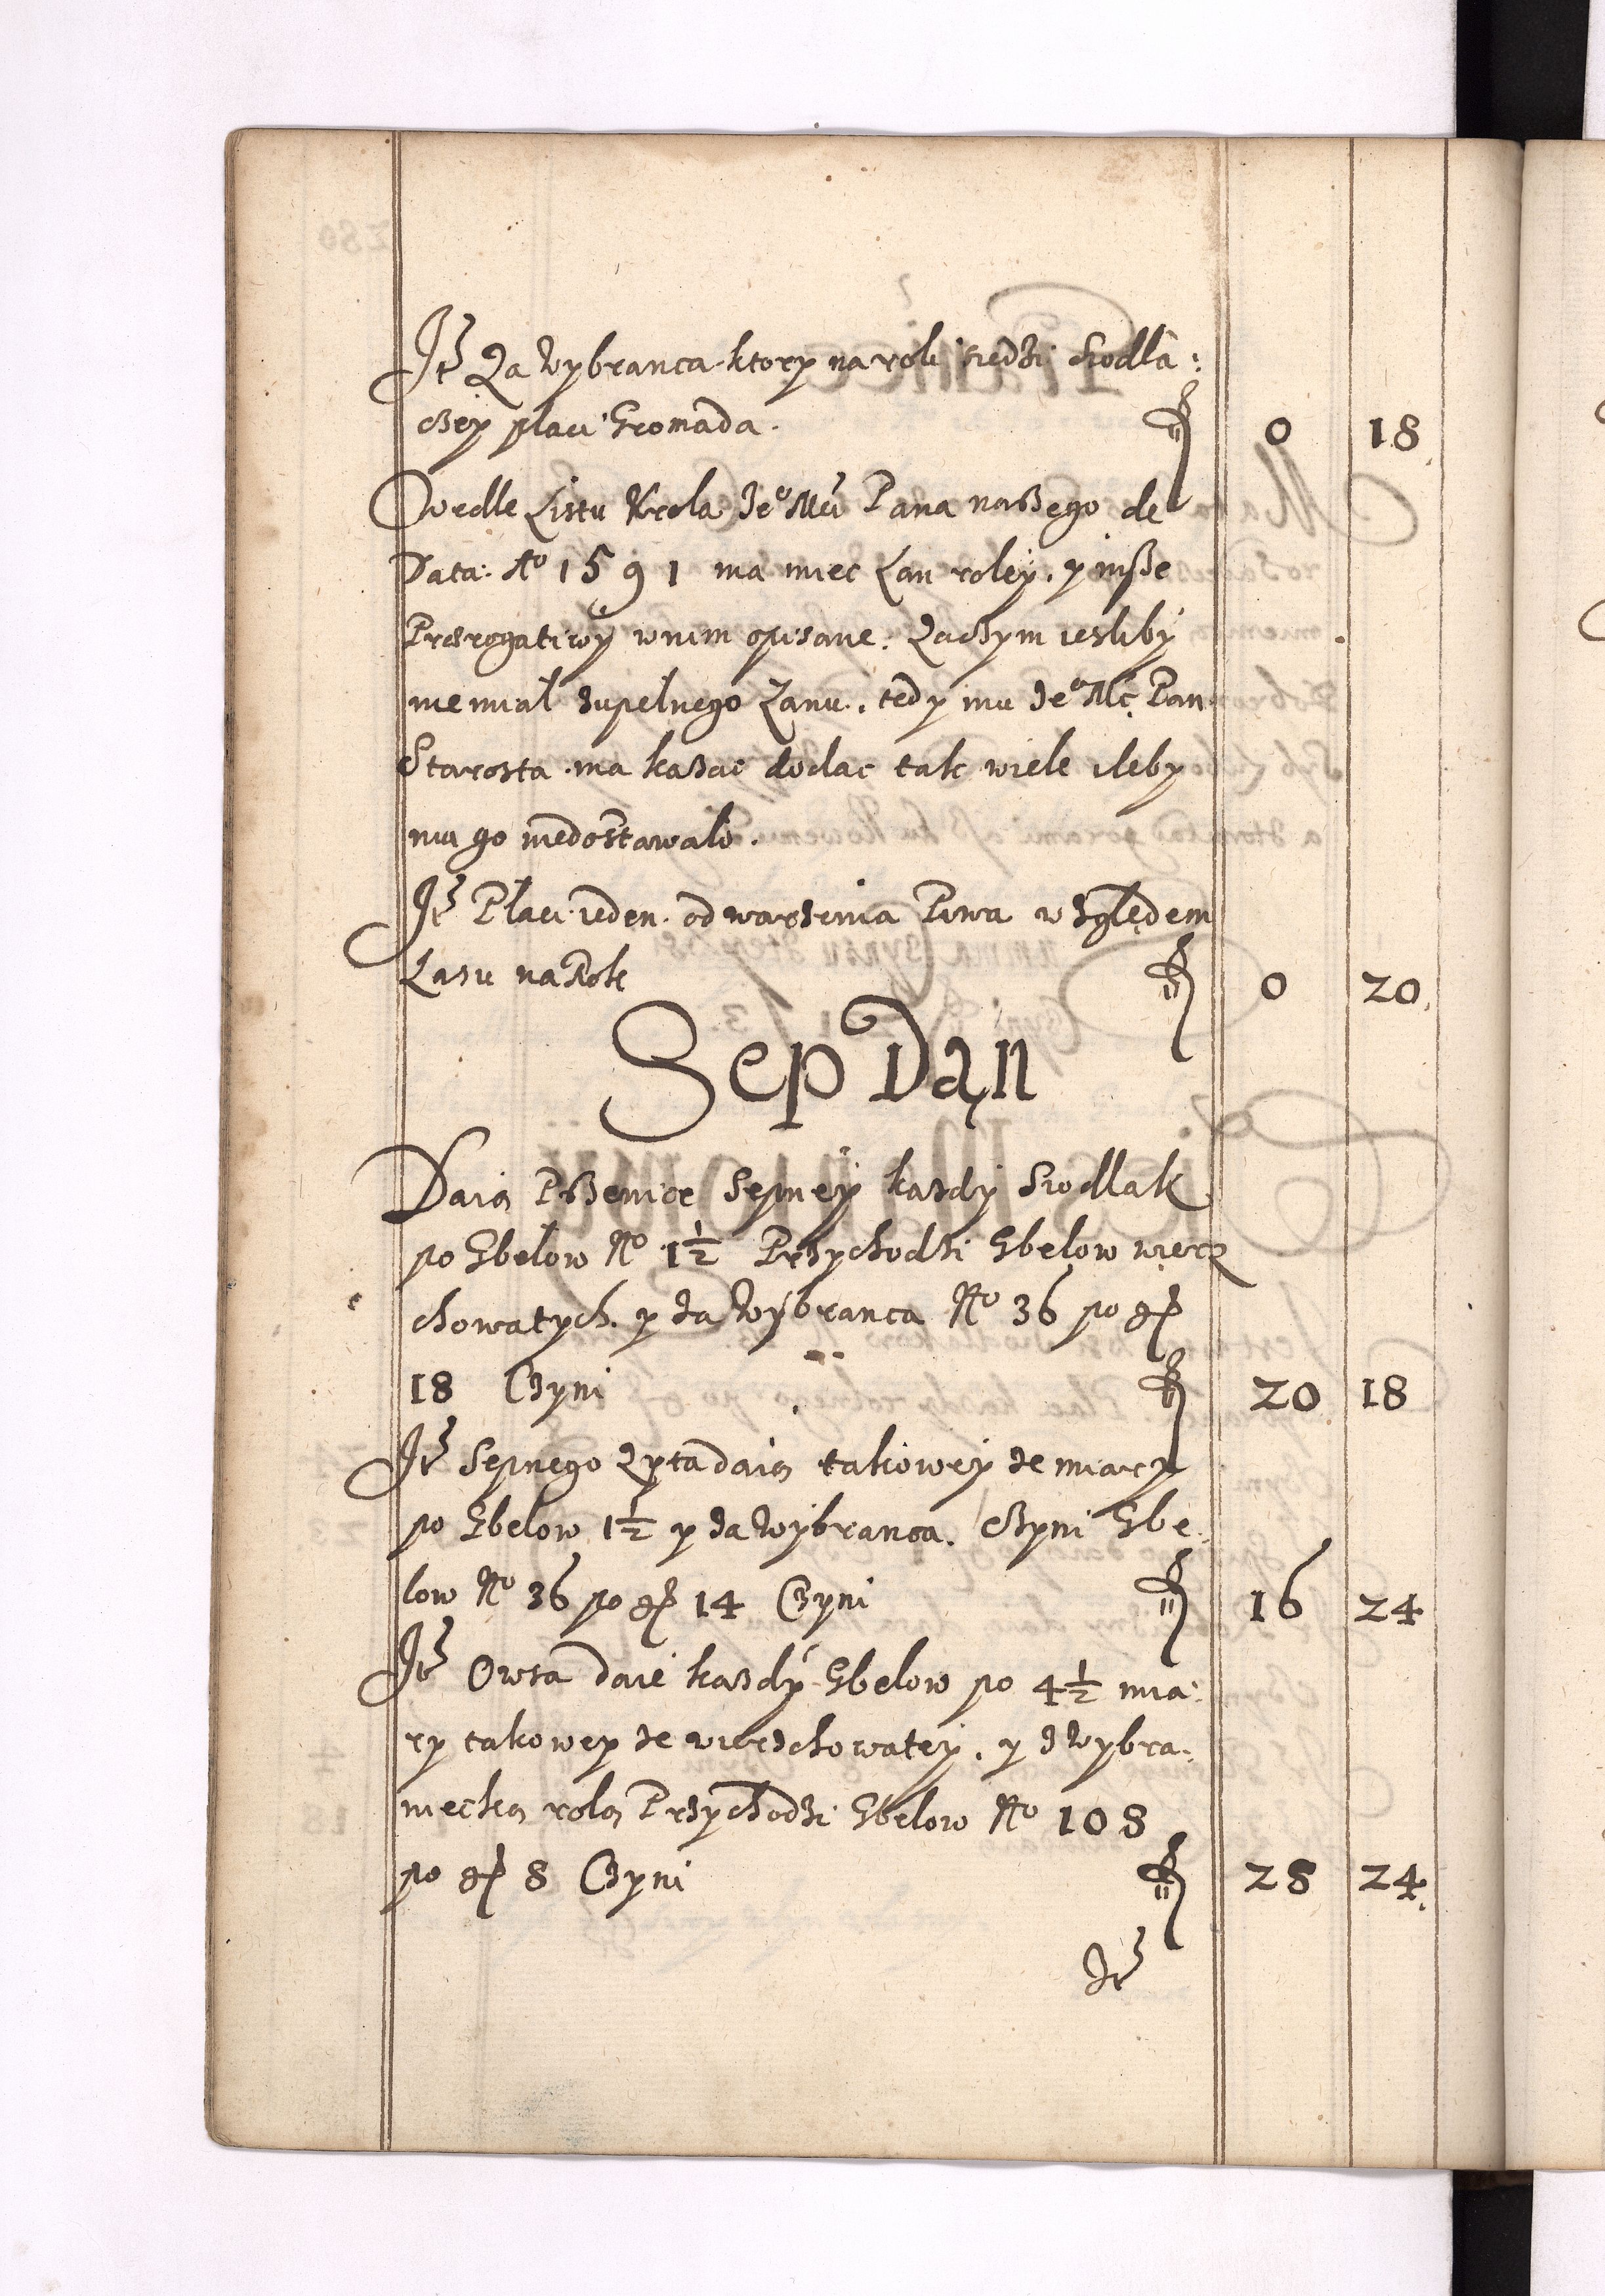 It Za wybranca ktory na roli siedzi siodla:
czeÿ płaci Gromada. 0 18
Wedle Listu Krola Jeo Mci Pana naszego de
Data: Ao 1591 ma miec Łan roleÿ. y insze
Prærogatiwÿ wnim opisane: Zaczym iesliby
nie miał zupełnego Łanu, tedy mu Jeo Mc Pan
Starosta ma kazac dodac tak wiele ileby
mu go niedostawało.
It Płaci ieden od warzenia Piwa względem
Lasu na Rok 0 20
Sep Dań
Daią Pszenice Sepneÿ kazdy Siodlak
po Gbelow No 1½ Przychodzi Gbelow wierz
chowatych y za Wybranca No 36 po gł
18 Czyni 20 18
It Sepnego Zyta daią takoweÿ ze miary
po Gbelow 1½ y za Wybranca. Czyni Gbe:
low No 36 po gł 14 Czyni 16 24
It Owsa daie kazdy Gbelow po 4½ mia:
ry takowey ze wierzchowateÿ. y z Wybra:
niecką rolą Przychodzi Gbelow No 108
po gł 8 Czyni 28 24
It